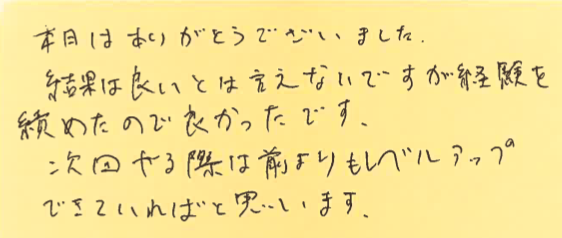 本日はありがとうございました.
結果は良いとは言えないですが経験を
積めたので良かったです.
次回やる際は前よりもレベルアップ
できていればと思います.